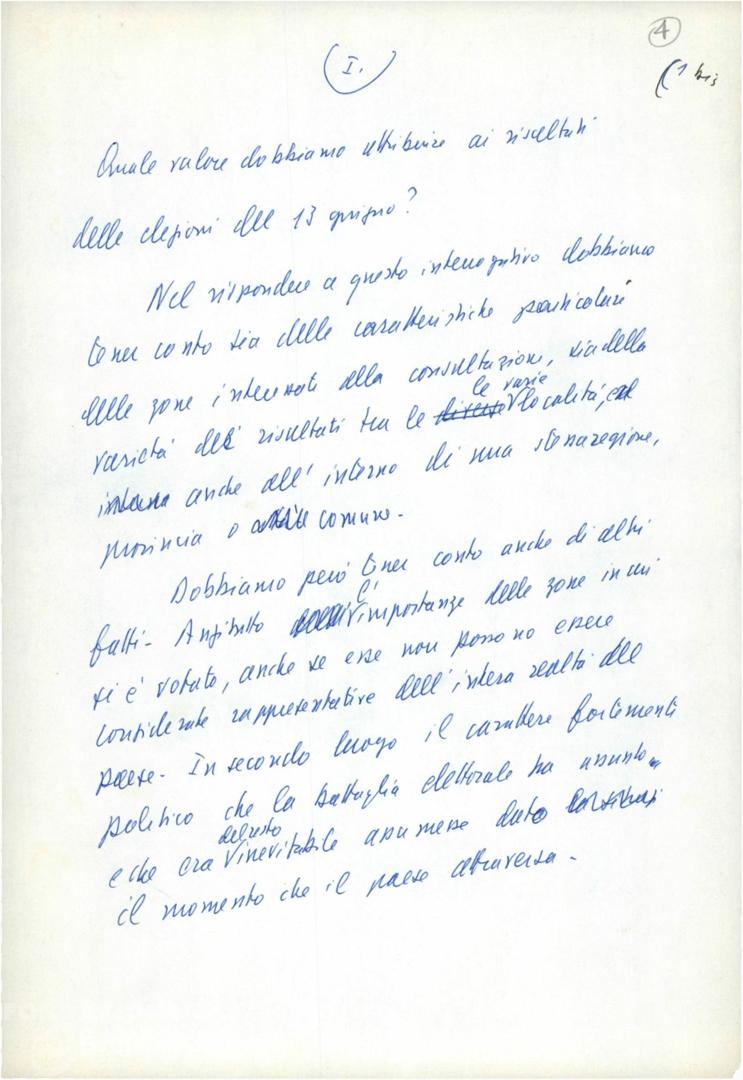 4
(1 bis
(I.)
Quale valore dobbiamo attribuire ai risultati
delle elezioni del 13 giugno?
Nel rispondere a questo interrogativo dobbiamo
tener conto sia delle caratteristiche particolari
delle zone interessati alla consultazione, sia della
le varie
varietà dei risultati tra le diverse località, ed
anche all'interno di una stessa regione,
provincia o comune.
Dobbiamo però tener conto anche di altri
fatti. Anzitutto l'importanza delle zone in cui
si è votato, anche se esse non possono essere
considerate rappresentative dell'intera realtà del
paese. In secondo luogo il carattere fortemente
politico che la battaglia elettorale ha assunto
del resto
e che era inevitabile assumesse dato
il momento che il paese attraversa.